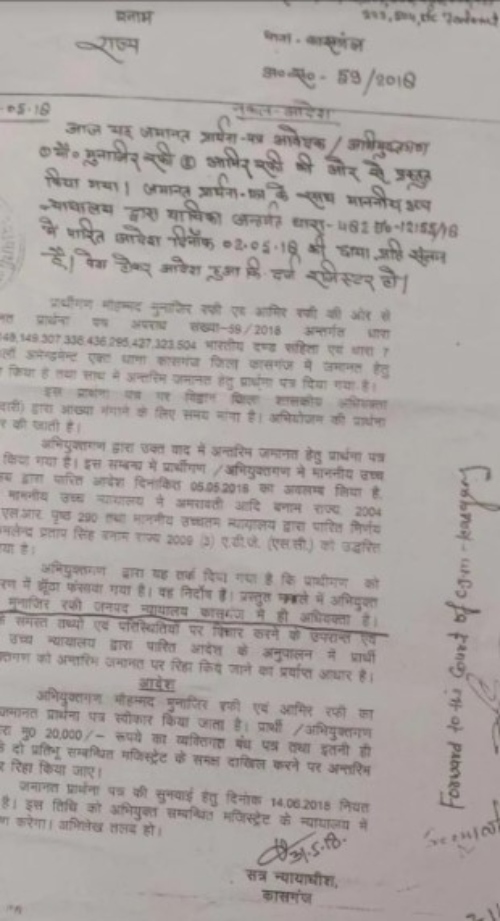 बनाम
राज्य
थाना - कासगंज
अ०सं०- 59/2018
-05-18
नकल-आदेश
आज यह जमानत प्रार्थना-पत्र आवेदक / अभियुक्तगण
① मो० मुनाजिर रफी ② आमिर रफी की ओर से प्रस्तुत
किया गया। जमानत प्रार्थना-पत्र के साथ माननीय उच्च
न्यायालय द्वारा याचिका अन्तर्गत धारा- 482
में पारित आदेश दिनाँक 02.05.18 की छाया प्रति संलग्न
है। पेश होकर आदेश हुआ कि दर्ज रजिस्टर हो।
प्रार्थीगण मोहम्मद मुनाजिर रफी एवं आमिर रफी की ओर से
नत प्रार्थना पत्र अपराध संख्या-59/2018 अन्तर्गत धारा
148,149,307,336,436,295,427,323,504 भारतीय दण्ड संहिता एवं धारा 7
अमेन्डमेन्ट एक्ट थाना कासगंज जिला कासगंज में जमानत हेतु
किया है तथा साथ में अन्तरिम जमानत हेतु प्रार्थना पत्र दिया गया है।
इस प्रार्थना पत्र पर विद्वान जिला शासकीय अधिवक्ता
दारी) द्वारा आख्या मंगाने के लिए समय मांगा है। अभियोजन की प्रार्थना
र की जाती है।
अभियुक्तगण द्वारा उक्त वाद में अन्तरिम जमानत हेतु प्रार्थना पत्र
किया गया है। इस सम्बन्ध में प्रार्थीगण /अभियुक्तगण ने माननीय उच्च
य द्वारा पारित आदेश दिनांकित 05.05.2018 का अवलम्ब लिया है।
माननीय उच्च न्यायालय ने अमरावती आदि बनाम राज्य 2004
एस.आर. पृष्ठ 290 तथा माननीय उच्चतम न्यायालय द्वारा पारित निर्णय
मलेन्द्र प्रताप सिंह बनाम राज्य 2009 (3) ए.डी.जे. (एस.सी.) को उद्धरित
या है।
अभियुक्तगण द्वारा यह तर्क दिया गया है कि प्रार्थीगण को
रण में झूँठा फंसाया गया है। वह निर्दोष है। प्रस्तुत मामले में अभियुक्त
मुनाजिर रफी जनपद न्यायालय कासगंज में ही अधिवक्ता है।
के समस्त तथ्यों एवं परिस्थितियों पर विचार करने के उपरान्त एवं
उच्च न्यायालय द्वारा पारित आदेश के अनुपालन में प्रार्थी
क्तगण को अन्तरिम जमानत पर रिहा किये जाने का पर्याप्त आधार है।
आदेश
अभियुक्तगण मोहम्मद मुनाजिर रफी एवं आमिर रफी का
जमानत प्रार्थना पत्र स्वीकार किया जाता है। प्रार्थी /अभियुक्तगण
रा मु0 20,000/- रूपये का व्यक्तिगत बंध पत्र तथा इतनी ही
के दो प्रतिभू सम्बन्धित मजिस्ट्रेट के समक्ष दाखिल करने पर अन्तरिम
र रिहा किया जाए।
जमानत प्रार्थना पत्र की सुनवाई हेतु दिनांक 14.06.2018 नियत
है। इस तिथि को अभियुक्त सम्बन्धित मजिस्ट्रेट के न्यायालय में
ण करेगा। अभिलेख तलब हो।
सत्र न्यायाधीश,
कासगंज